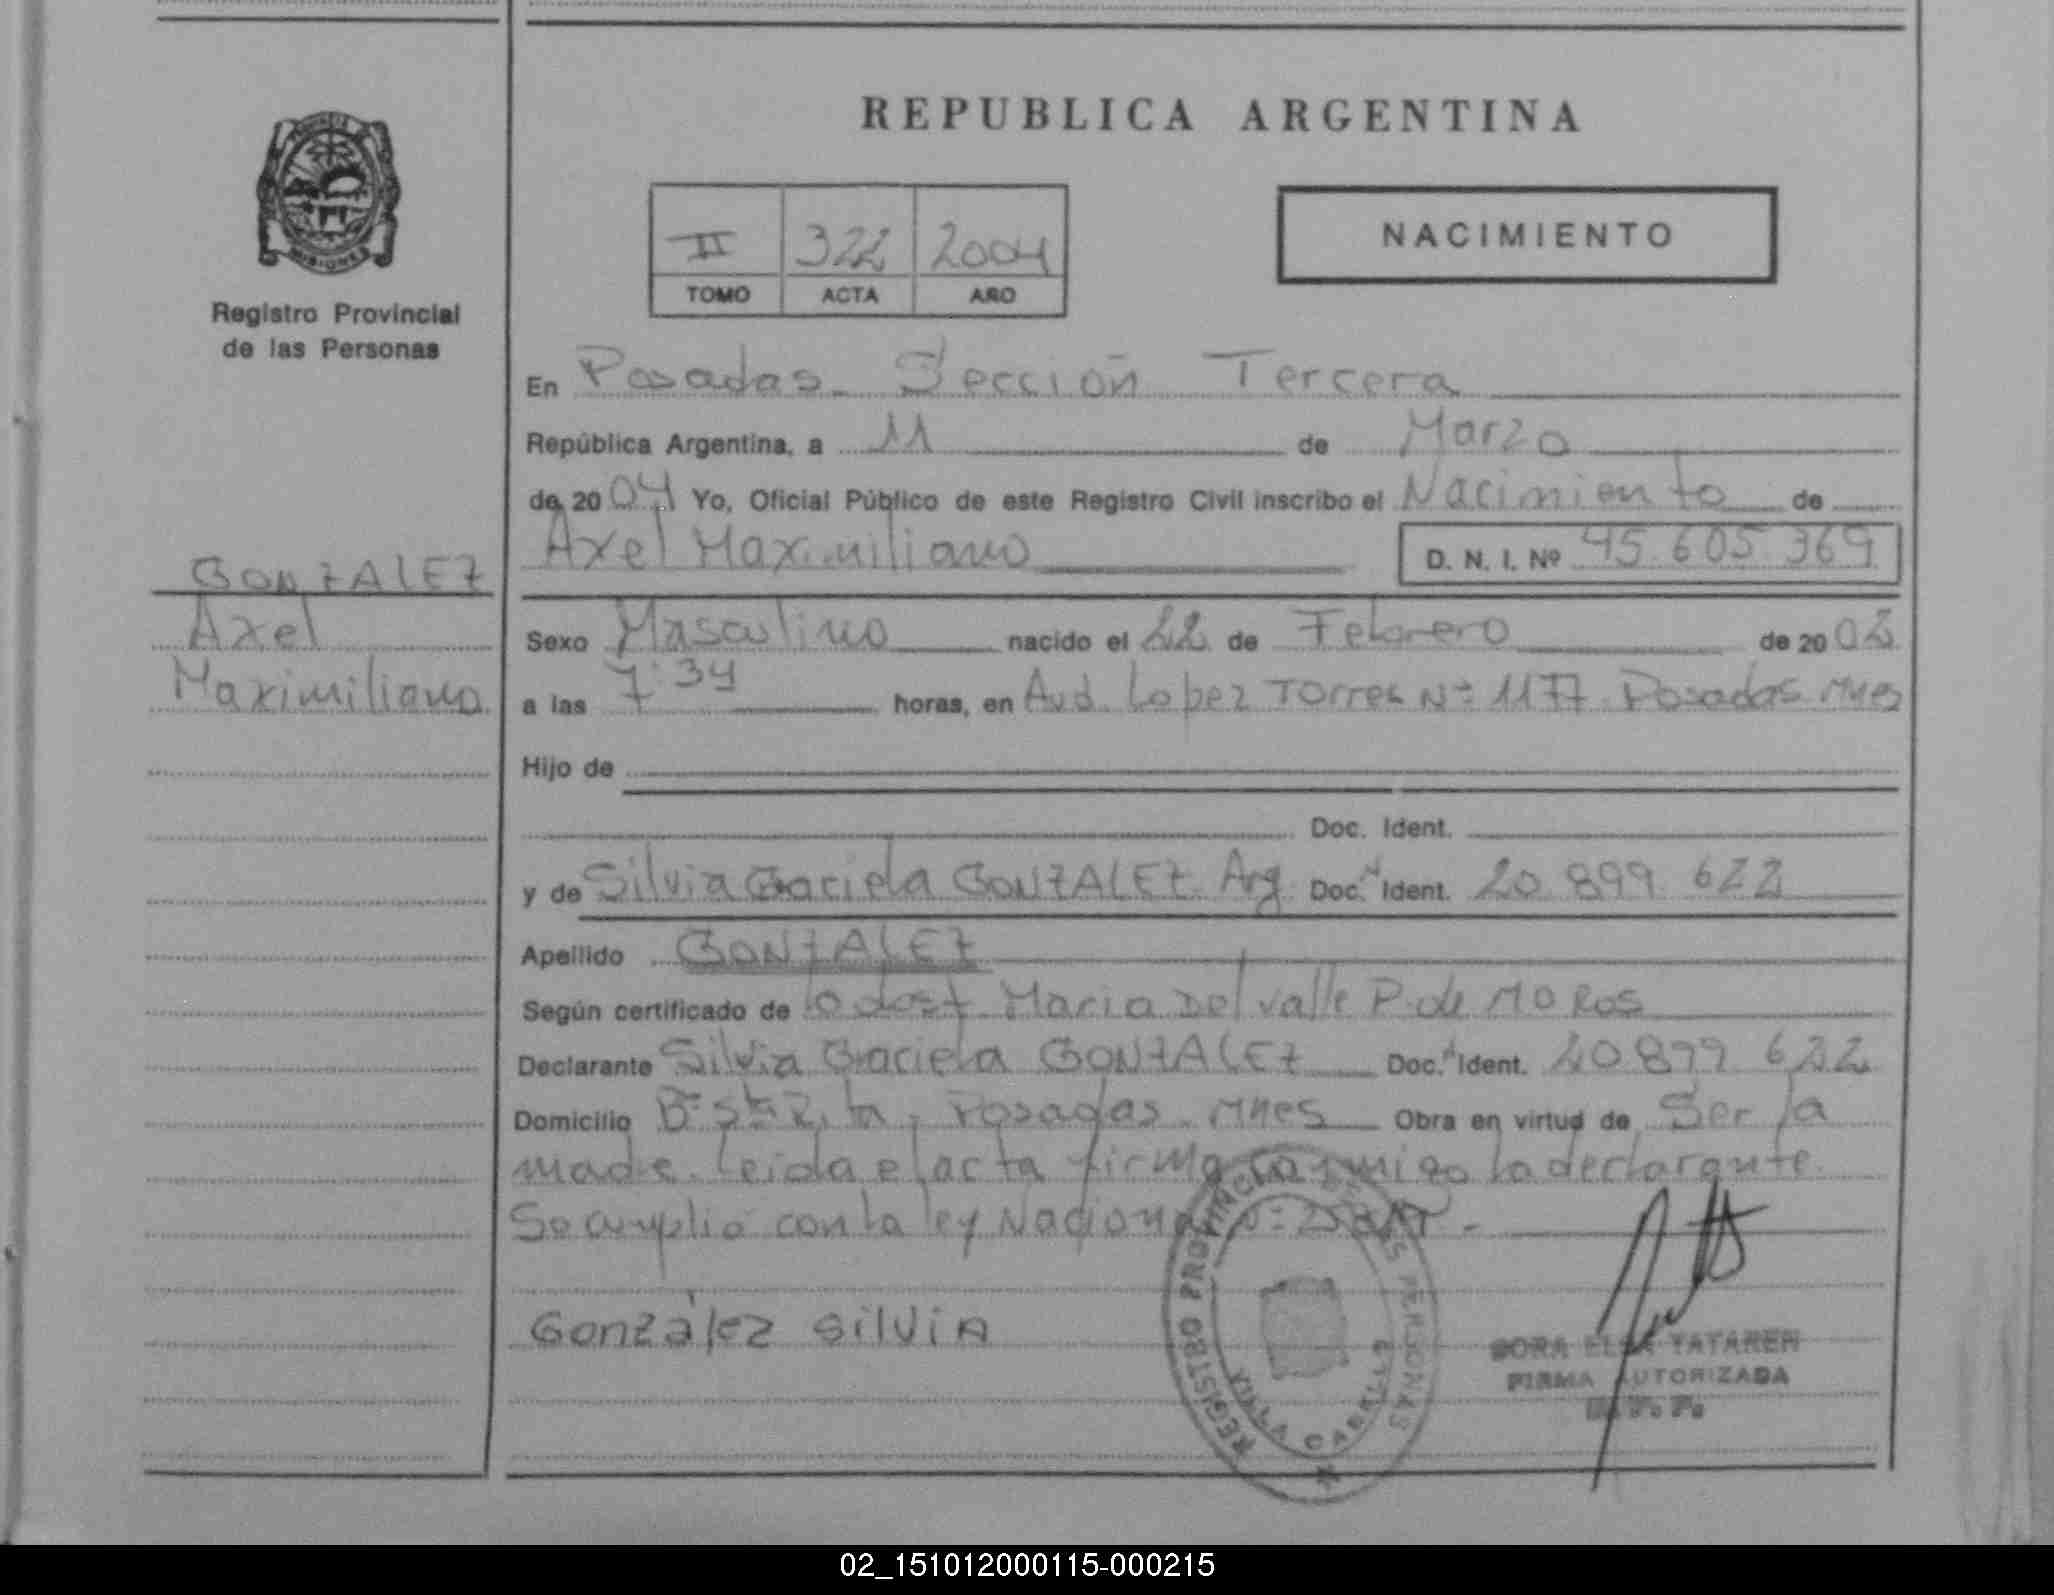 REPUBLICA ARGENTINA
NACIMIENTO
II 322 2004
TOMO ACTA AÑO
PROVINCIA
MISIONES
Registro Provincial
de las Personas
GONZALEZ
Axel
Maximiliano
En Posadas - Sección Tercera
República Argentina, a 11 de Marzo
de 2004 Yo, Oficial Público de este Registro Civil inscribo el Nacimiento de
Axel Maximiliano D. N. I. Nº 45.605.369
Sexo Masculino nacido el 22 de Febrero de 2002
a las 7:34 horas, en Avd. Lopez Torres Nº 1177. Posadas Mnes
Hijo de
Doc. Ident.
y de Silvia Graciela GONZALEZ. Arg. Doc. Ident. 20 899 622
Apellido GONZALEZ
Según certificado de Maria Del Valle P. de MOROS
Declarante Silvia Graciela GONZALEZ Doc. Ident. 20 899 622
Domicilio Bº Sta Rita - Posadas - Mnes Obra en virtud de Ser la
madre. Leida el acta firma conmigo la declarante.
Se cumplió con la ley Nacional Nº -
González Silvia
REGISTRO PROVINCIAL DE LAS PERSONAS
VILLA CABELLO
ELSA YATAREN
FIRMA AUTORIZADA
02_151012000115-000215